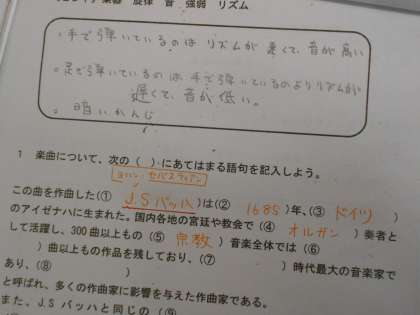 楽器 旋律 音 強弱 リズム
・手で弾いているのは リズムが 速くて、音が高い
・足で弾いているのは、手で弾いているのよりリズムが
遅くて、音が低い。
・暗いかんじ
1 楽曲について、次の( )にあてはまる語句を記入しよう。
ヨハン・セバスティアン
この曲を作曲した(① J.Sバッハ )は(② 1685 )年、(③ ドイツ )
のアイゼナハに生まれた。国内各地の宮廷や教会で(④ オルガン )奏者と
して活躍し、300曲以上もの(⑤ 宗教 )音楽全体では(⑥
)曲以上もの作品を残しており、(⑦ )時代最大の音楽家で
あり、(⑧ )
と呼ばれ、多くの作曲家に影響を与えた作曲家である。
また、J.S バッハと同じの(⑨